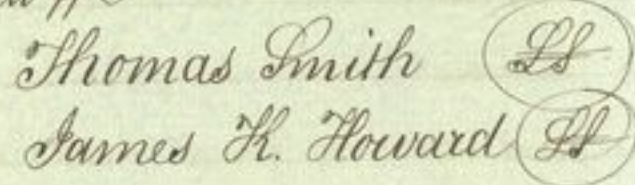 Thomas Smith LS
James K. Howard LS